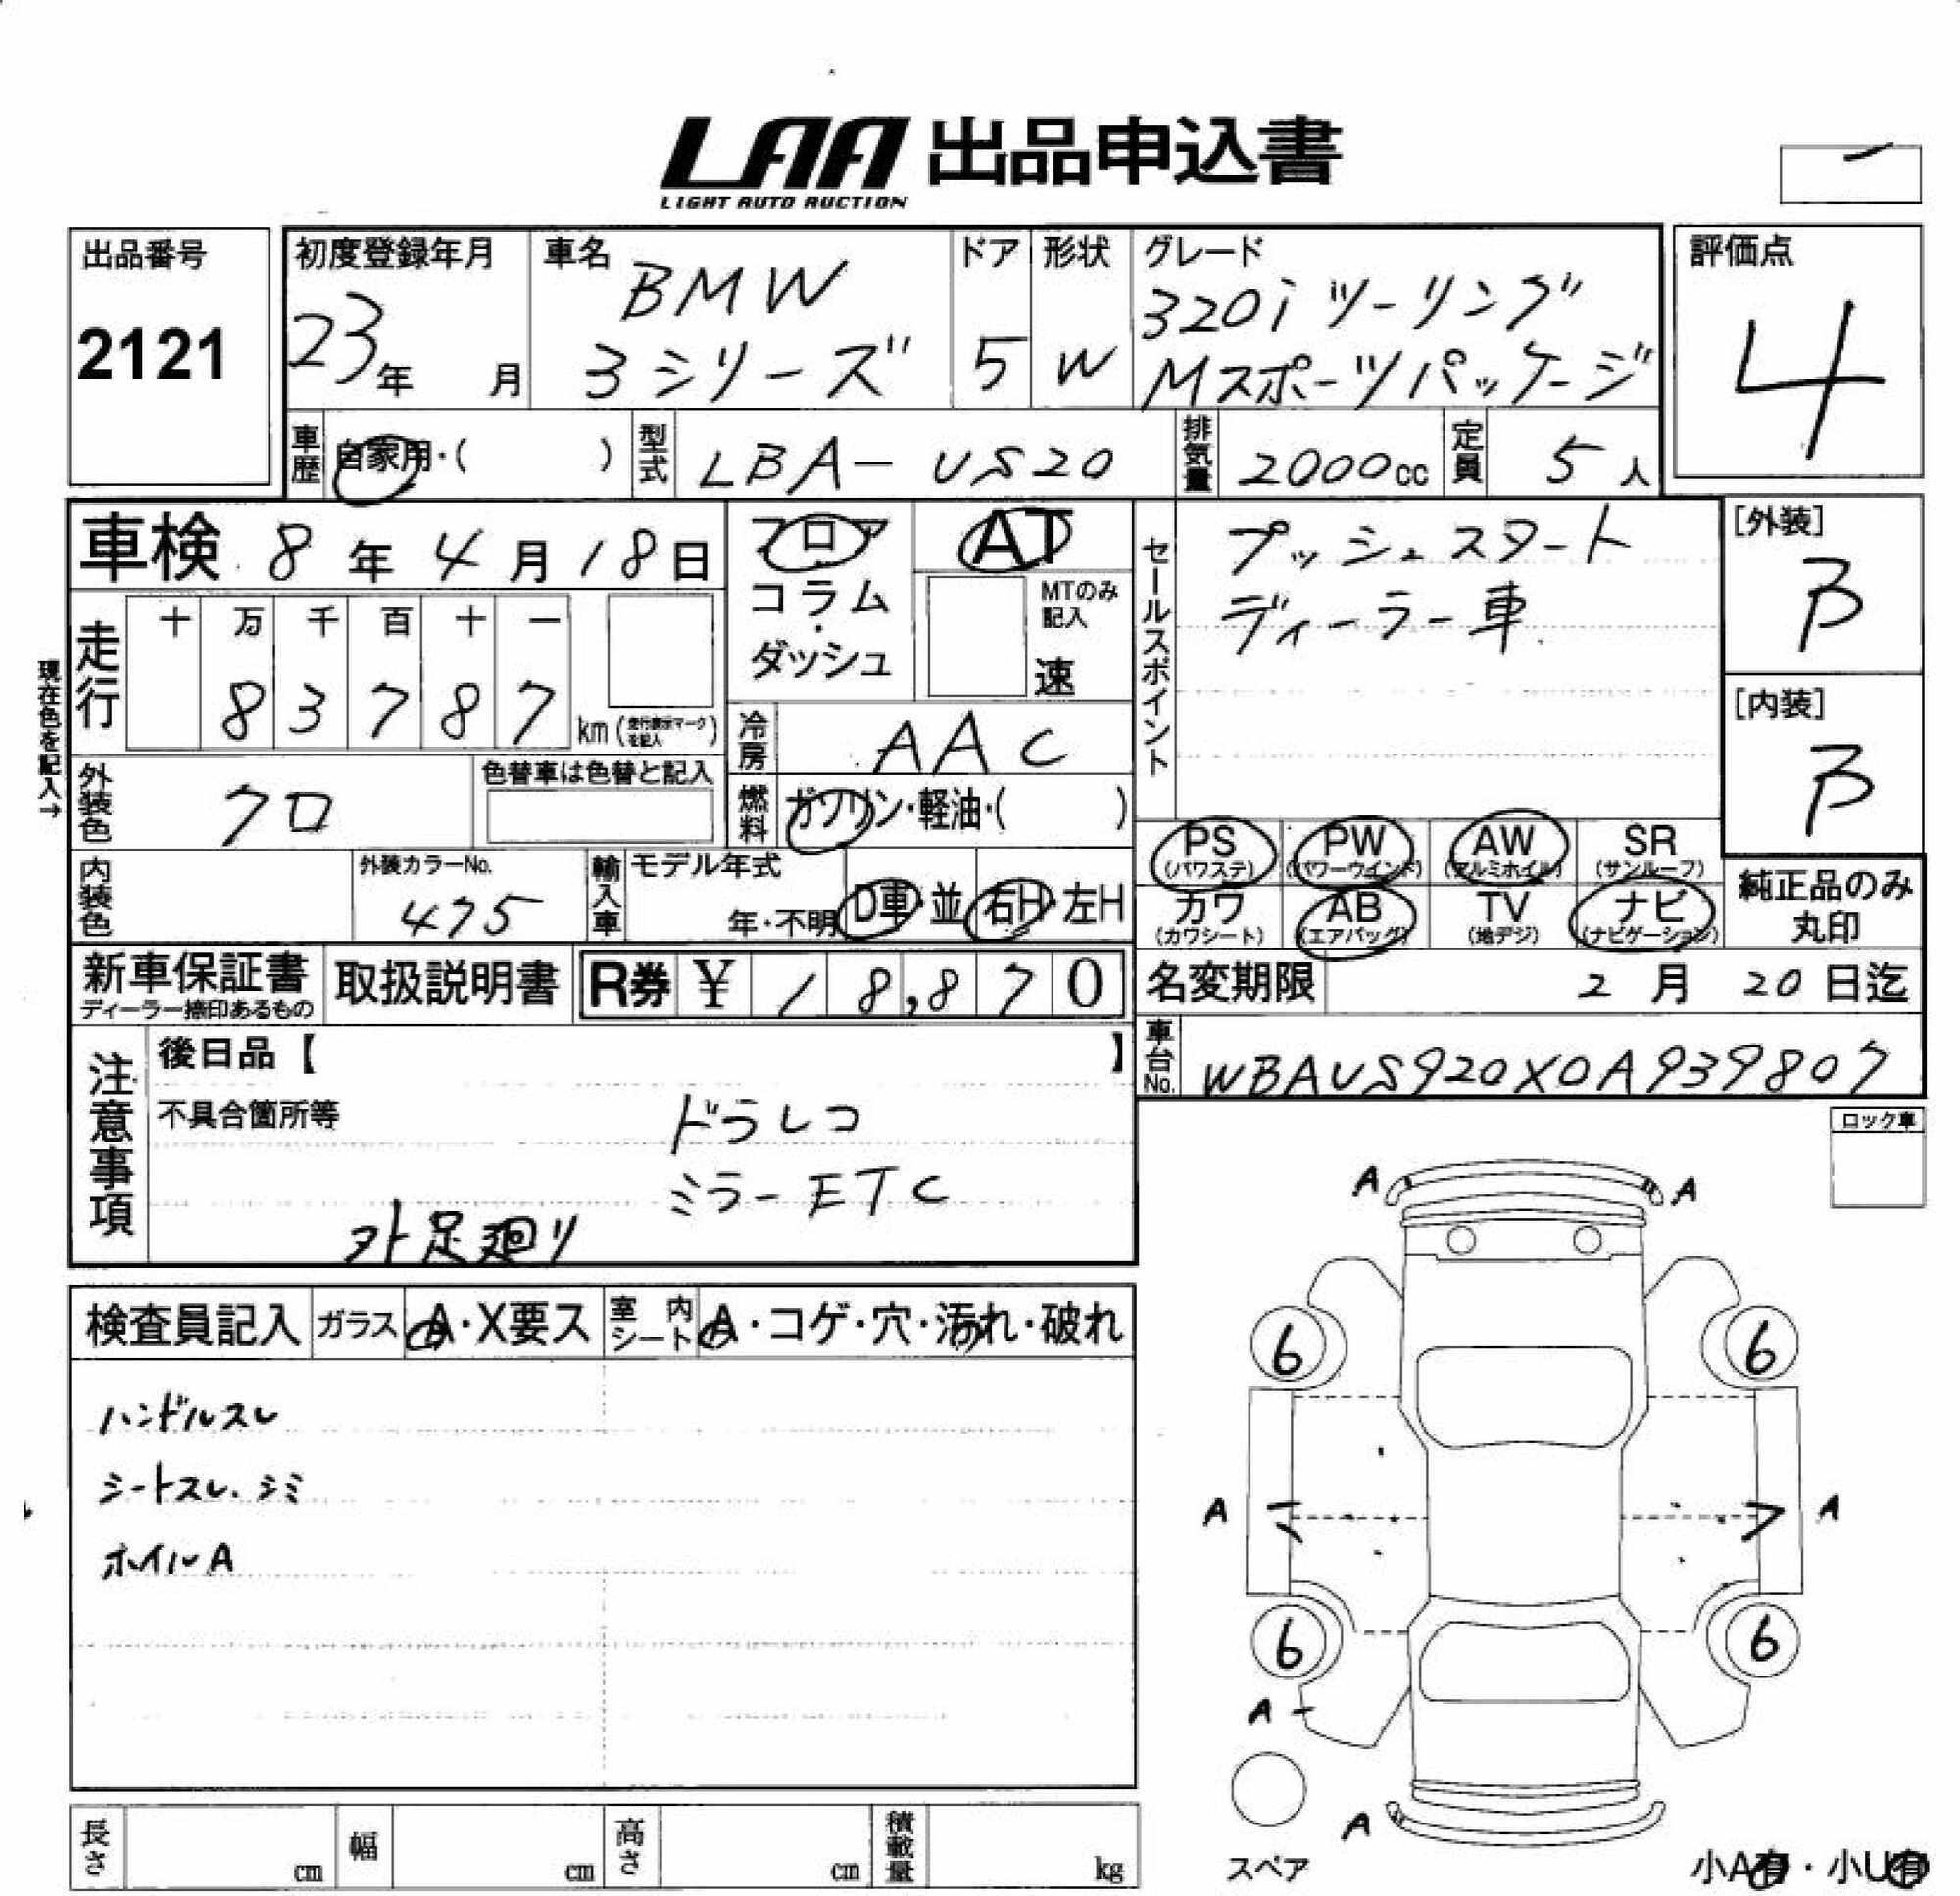 LAA 出品申込書
LIGHT AUTO AUCTION
出品番号
2121
初度登録年月
23年 月
車名
BMW
3シリーズ
ドア
5
形状
W
グレード
320i ツーリング
Mスポーツパッケージ
評価点
4
車歴 自家用・( )
型式 LBA-US20
排気量 2000cc
定員 5人
車検 8年4月18日
走行
十 万 千 百 十 一
8 3 7 8 7 km (走行表示マークを記入)
現在色を記入→
フロア
コラム
・
ダッシュ
AT
MTのみ
記入
速
冷房 AAC
燃料 ガソリン・軽油・( )
セールスポイント
プッシュスタート
ディーラー車
[外装]
B
[内装]
B
外装色 クロ
色替車は色替と記入
内装色
外装カラーNo.
475
輸入車
モデル年式
年・不明
D車・並
右H・左H
PS
(パワステ)
PW
(パワーウインド)
AW
(アルミホイル)
SR
(サンルーフ)
カワ
(カワシート)
AB
(エアバッグ)
TV
(地デジ)
ナビ
(ナビゲーション)
純正品のみ
丸印
新車保証書
ディーラー捺印あるもの
取扱説明書
R券 ¥ 18,870
名変期限 2月20日迄
車台No. WBAUS920X0A939807
注意事項
後日品【 】
不具合箇所等
ドラレコ
ミラーETC
外足廻リ
ロック車
検査員記入
ガラス A・X要ス
室内シート A・コゲ・穴・汚れ・破れ
ハンドルスレ
シートスレ、シミ
ホイルA
A A
6 6
A A
6 6
A
A
スペア
小A有・小U有
長さ cm
幅 cm
高さ cm
積載量 kg